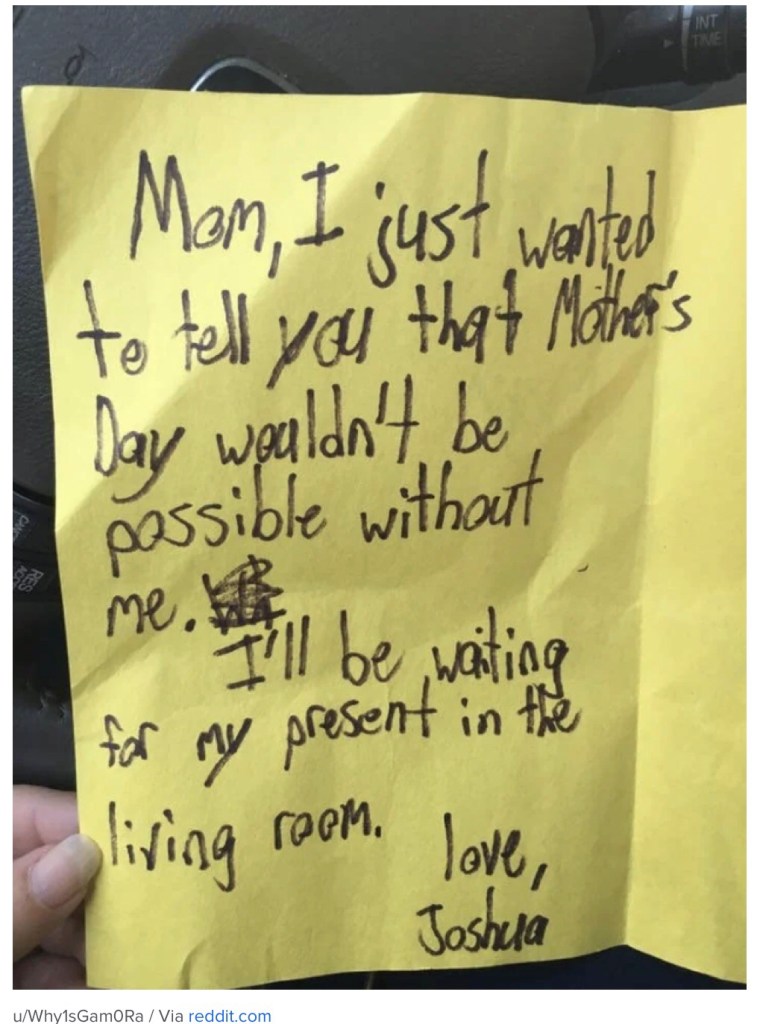 INT
TIME
Mom, I just wanted
to tell you that Mother's
Day wouldn't be
possible without
me.
I'll be waiting
for my present in the
living room.
love,
Joshua
u/Why1sGam0Ra / Via reddit.com